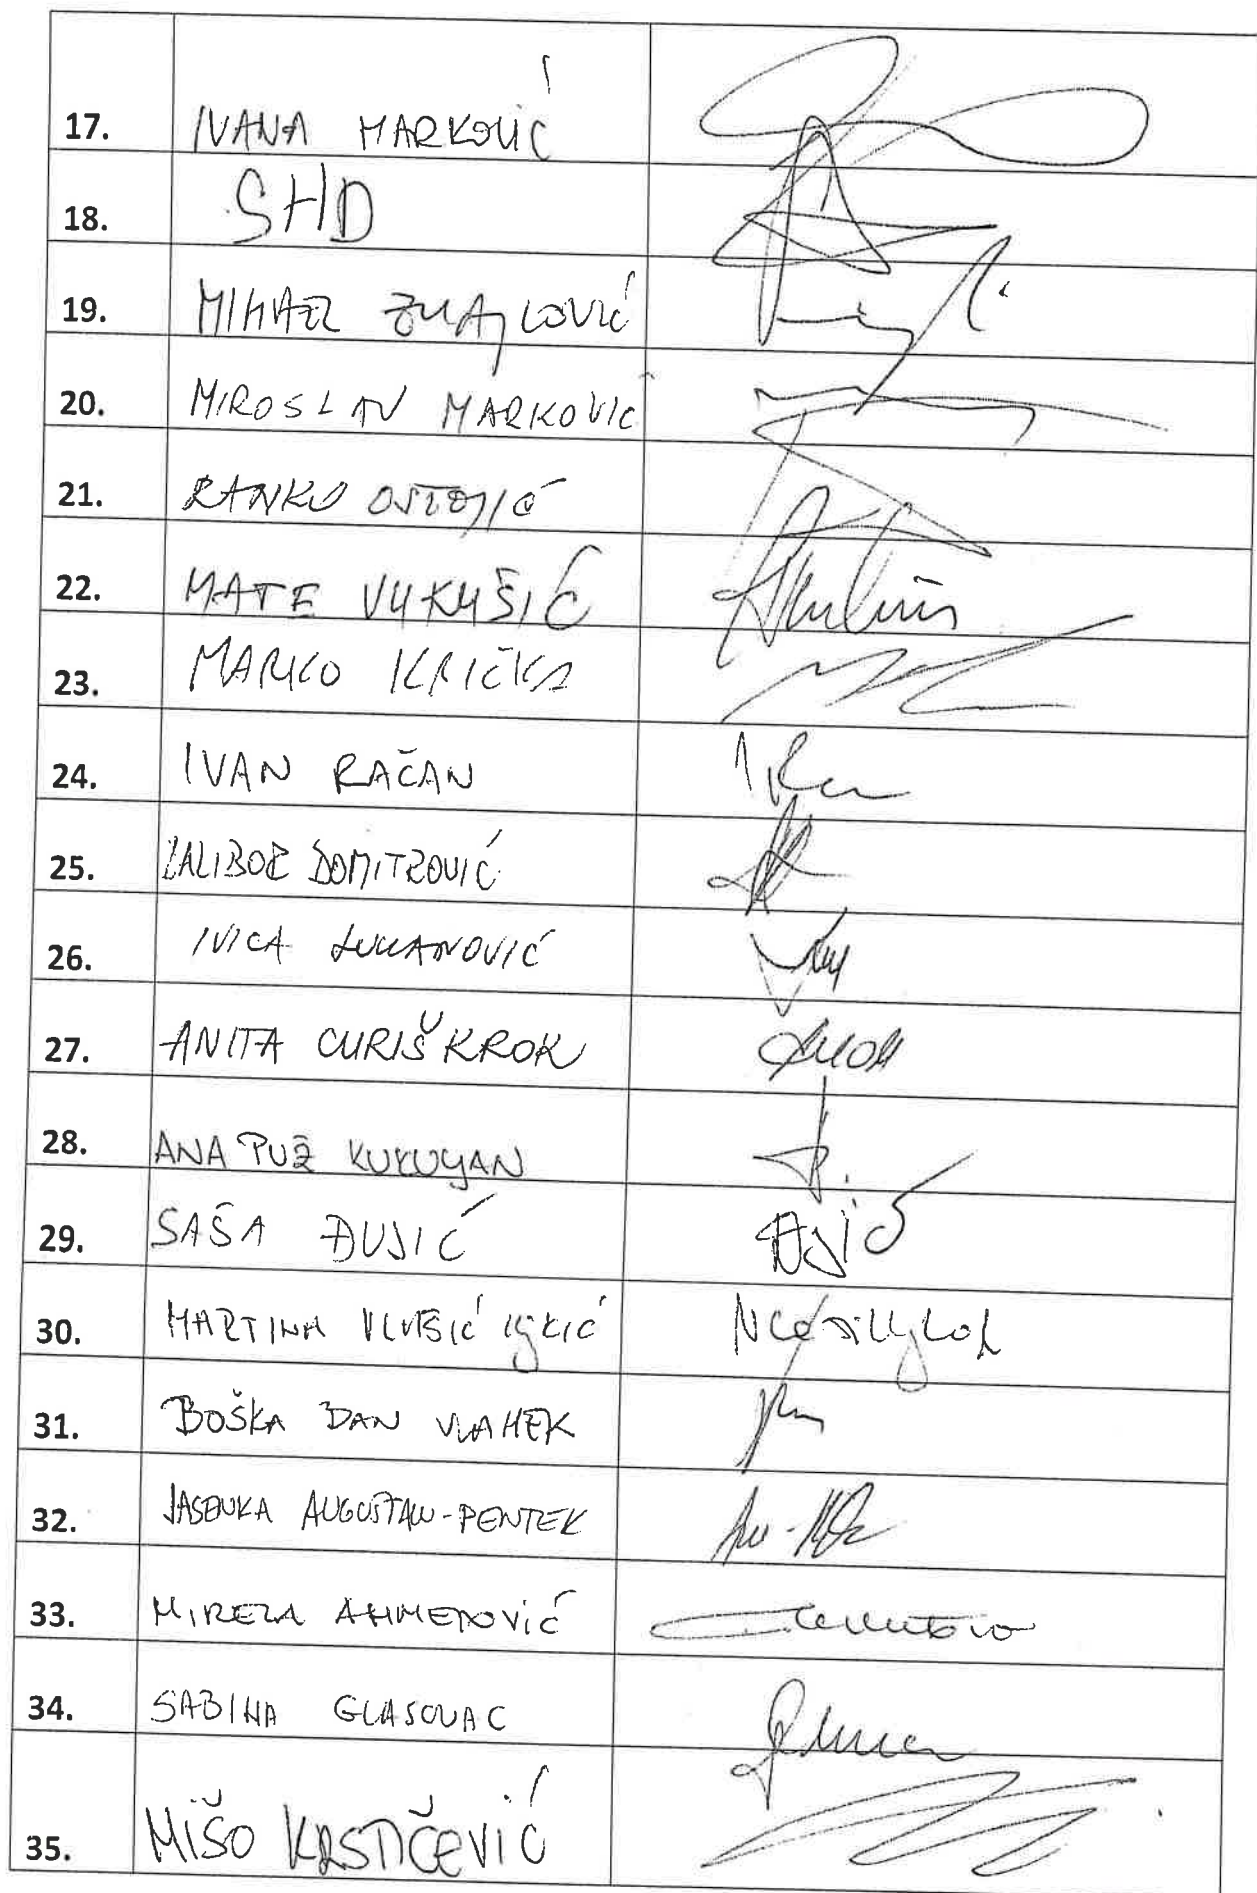 17. IVANA MARKOVIĆ
18. SHD
19. MIHAEL ZMAJLOVIĆ
20. MIROSLAV MARKOVIĆ
21. RANKO OSTOJIĆ
22. MATE VUKUŠIĆ
23. MARKO KRIČKA
24. IVAN RAČAN
25. DALIBOR DOMITROVIĆ
26. IVICA LUKANOVIĆ
27. ANITA CURIŠ KROK
28. ANA PUŽ KUKULJAN
29. SAŠA ĐUJIĆ
30. MARTINA VLAŠIĆ ILJKIĆ
31. BOŠKA BAN VLAHEK
32. JASENKA AUGUSTAN-PENTEK
33. MIRELA AHMETOVIĆ
34. SABINA GLASOVAC
35. MIŠO KRSTIČEVIĆ